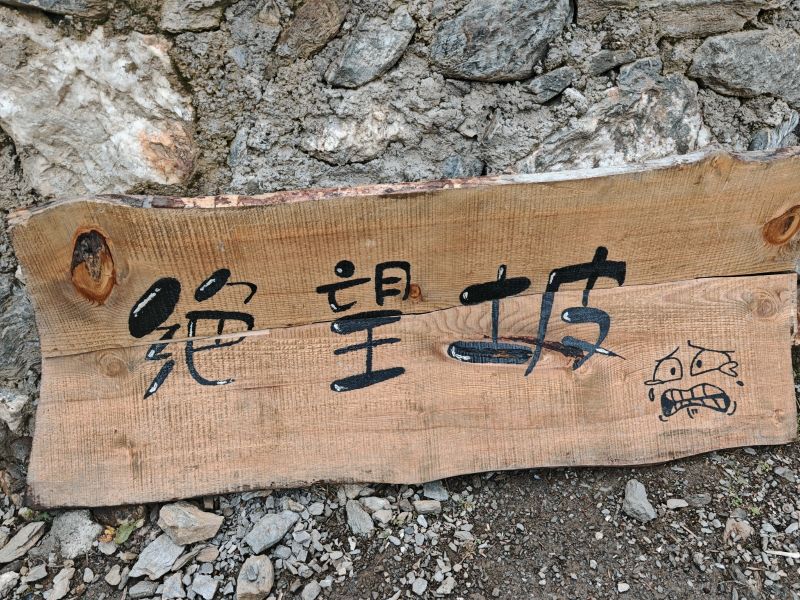 绝望坡